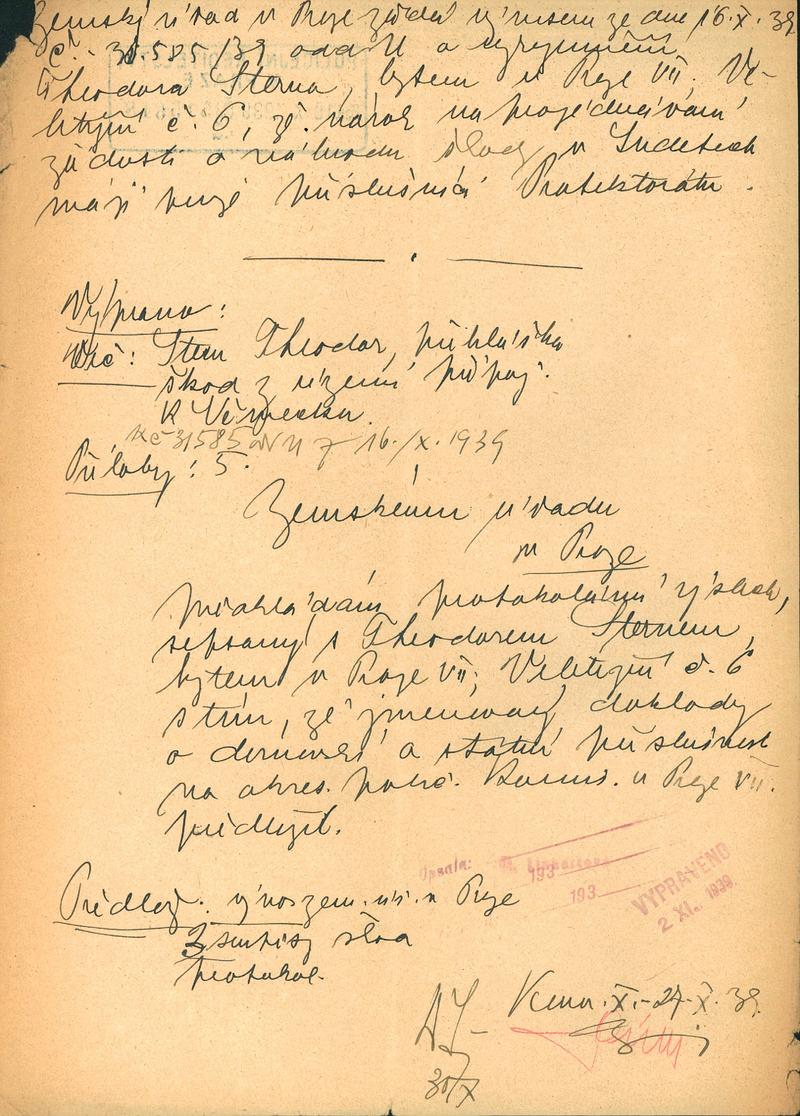 Zemský úřad v Praze žádá výnosem ze dne 16.X.39
č. 31.585/39 odd. 11 o vyrozumění
Theodora Sterna, bytem v Praze VII, Ve-
letržní č. 6, že nárok na projednávání
žádosti o náhradu škod v Sudetech
mají pouze příslušníci Protektorátu.
Vypraviti:
Věc: Stern Theodor, přihláška
škod z území připoj.
k Německu.
č 31585 11 z 16./X. 1939
Přílohy: 5.
Zemskému úřadu
v Praze
Předkládám protokolární výslech,
sepsaný s Theodorem Sternem,
bytem v Praze VII, Veletržní č. 6
s tím, že jmenovaný doklady
o domovské a státní příslušnosti
na okres. polic. komis. v Praze VII.
předložil.
Opsala:
193
193
VYPRAVENO
2 XI. 1939
Předlož: výnos zem. úř. v Praze
protokol
X. 27.X.39.
30/X